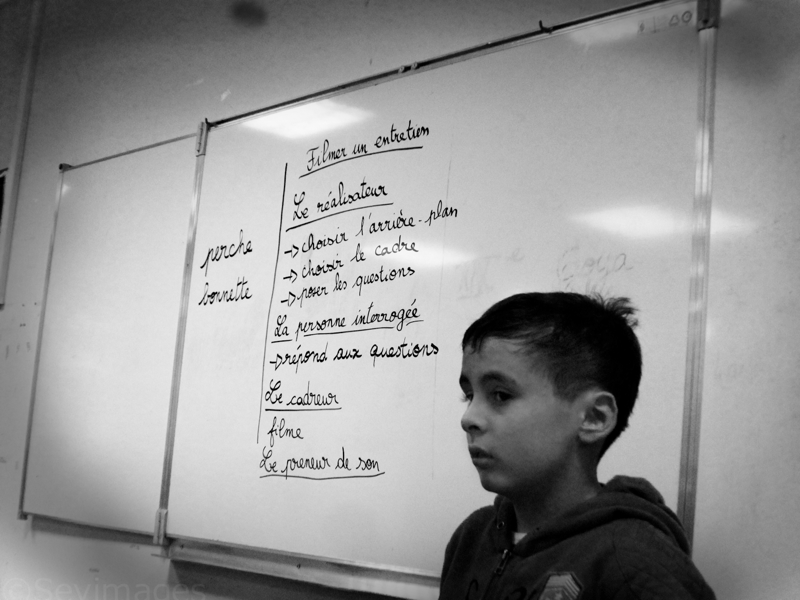 Filmer un entretien
Le réalisateur
-> choisir l'arrière-plan
-> choisir le cadre
-> poser les questions
La personne interrogée
-> répond aux questions
Le cadreur
filme
Le preneur de son
perche
bonnette
Goya
©Sevimages